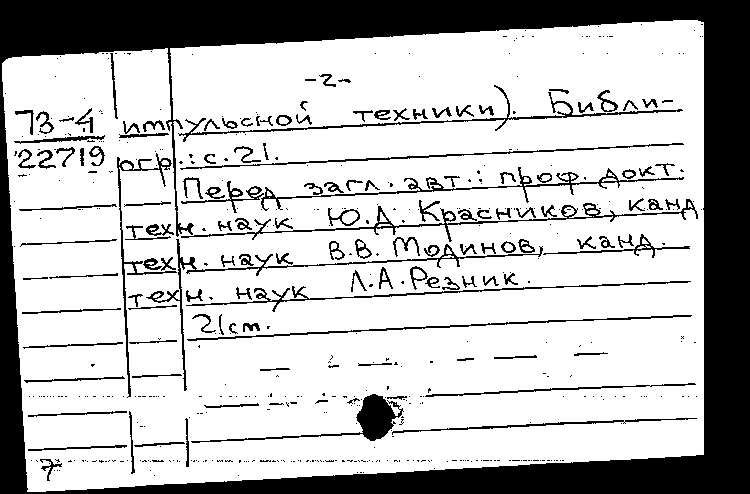 -2-
73-4 импульсной техники). Библи-
22719 огр.: с. 21.
Перед загл. авт.: проф. докт.
техн. наук Ю.Д. Красников, канд.
техн. наук В.В. Модинов, канд.
техн. наук Л.А. Резник.
21см.
7